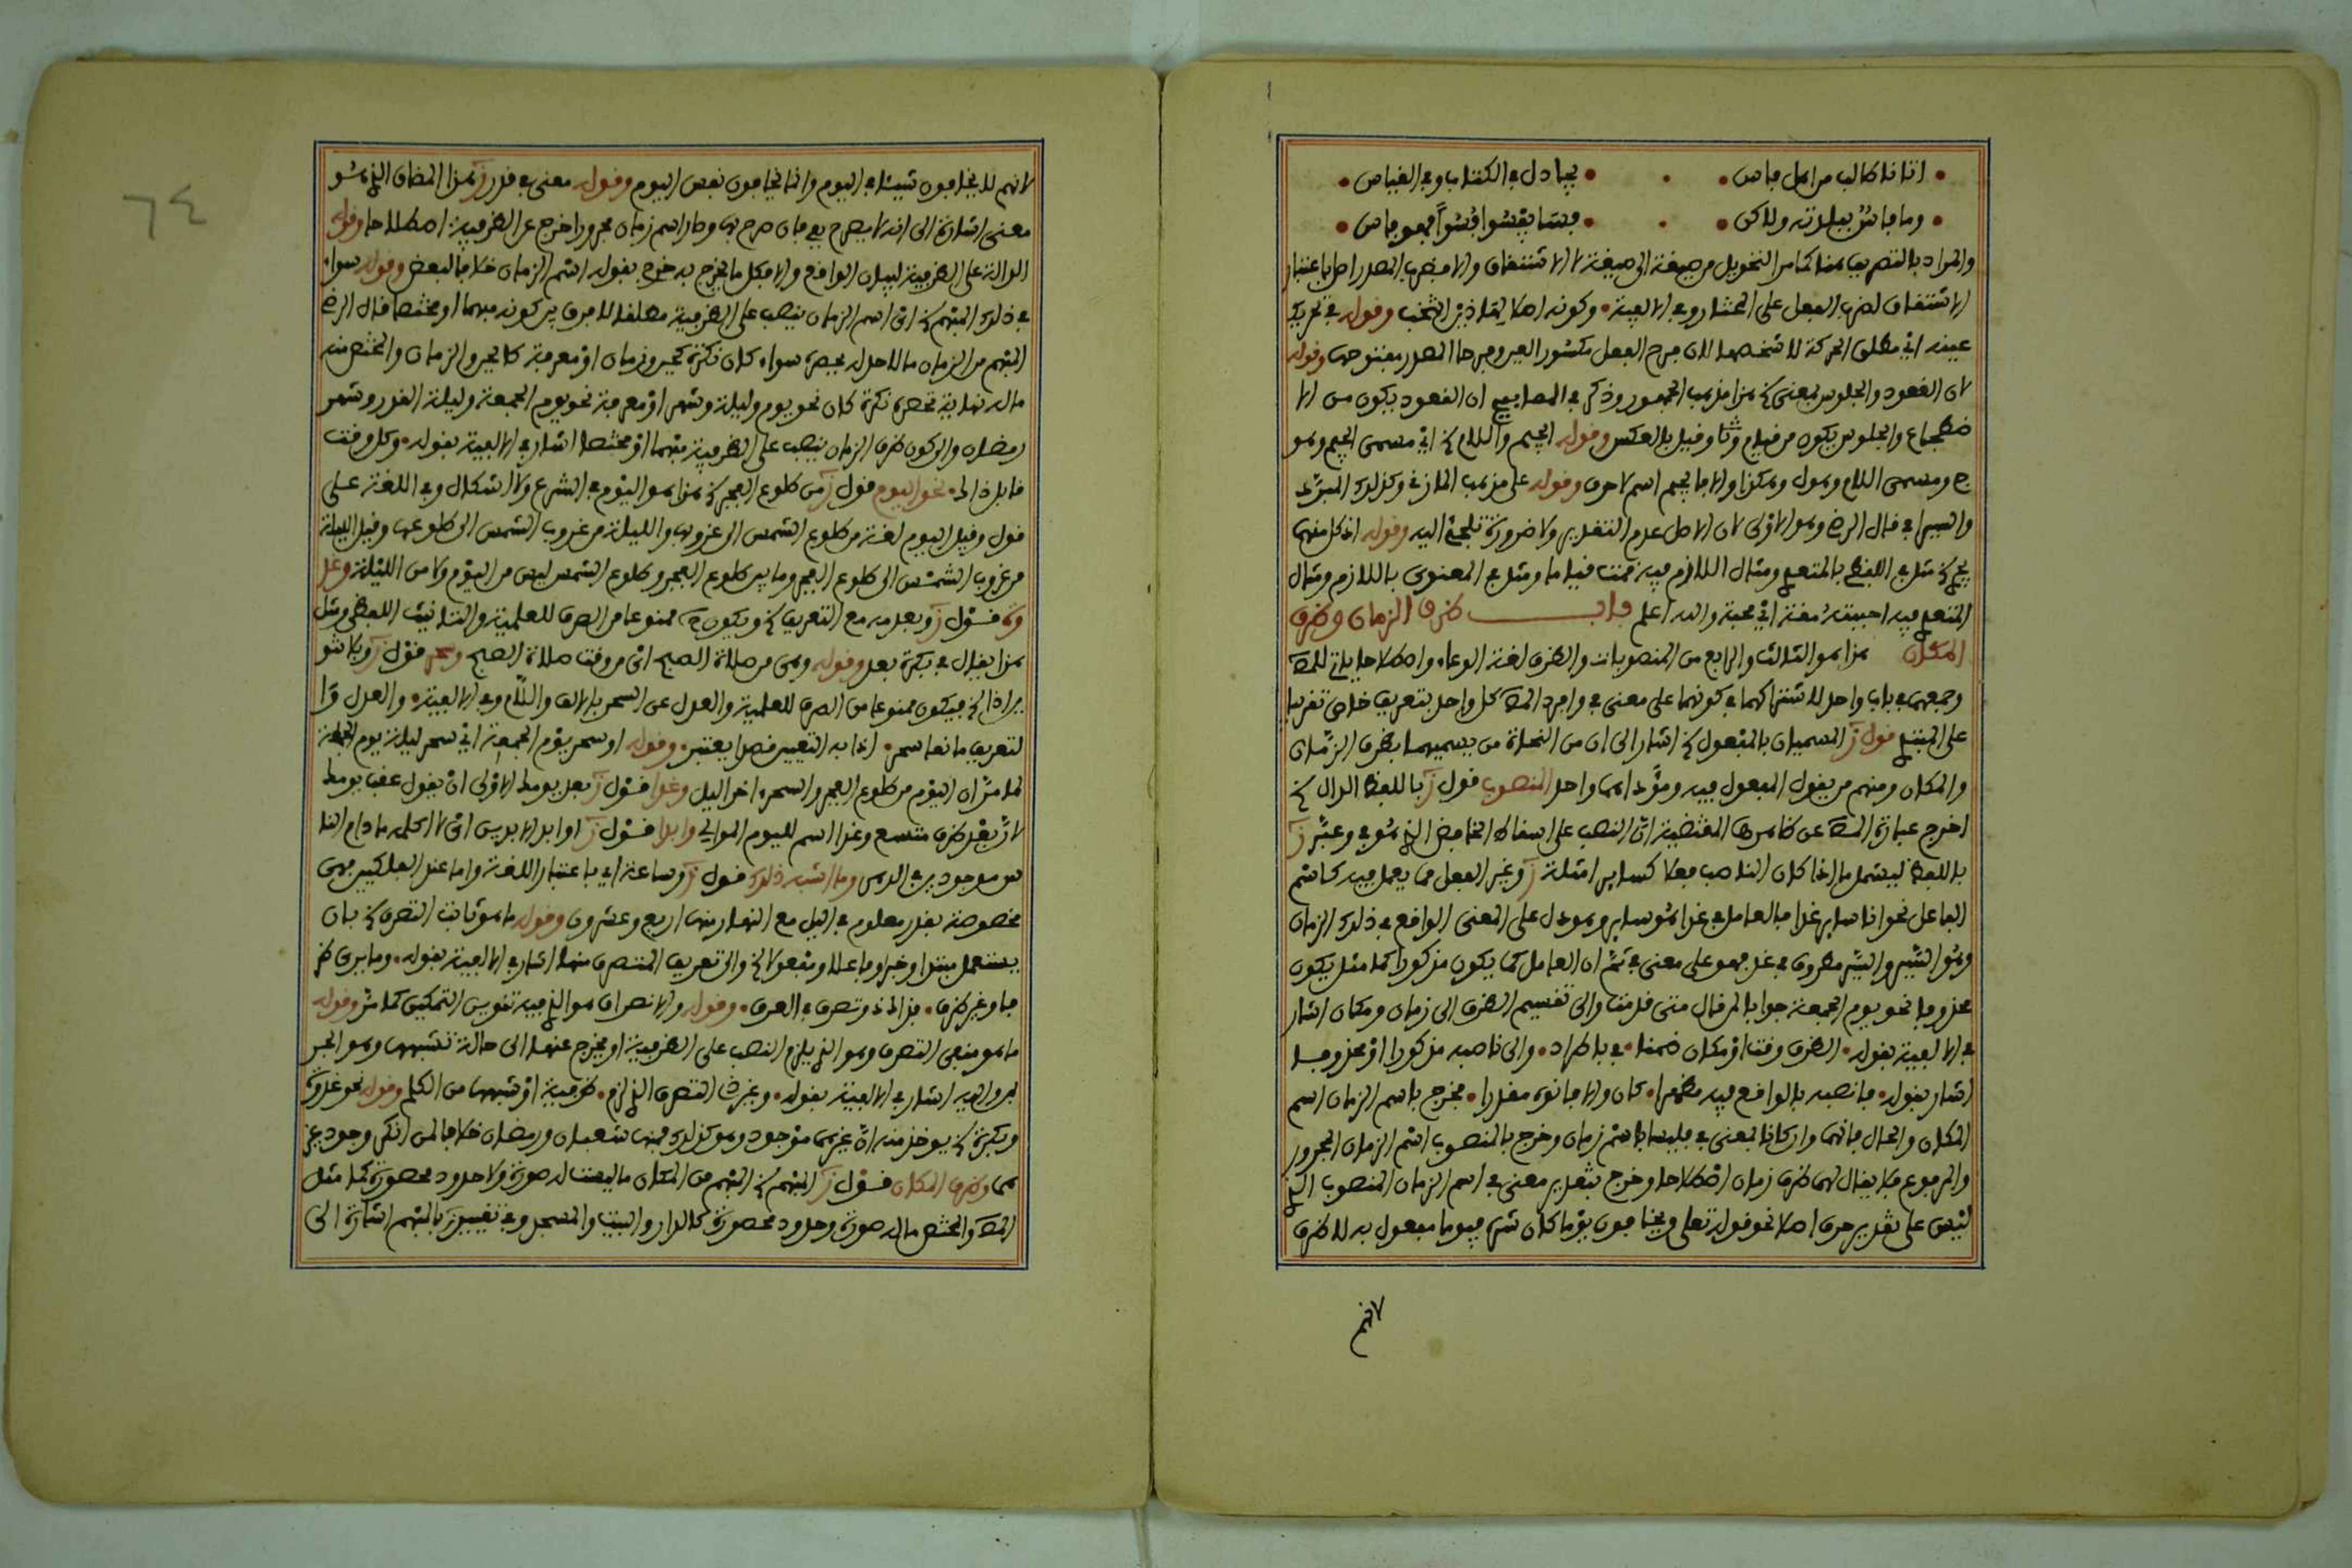 اتانا طالب من اهل فاس • • يجادل في الكتاب وفي القياس
وما فاس ببلدته ولاكن • • فسا يفسوا فسوا فهو فاس
والمراد بالتصريف هنا كما مر التحويل من صيغة الى صيغة لا الاشتقاق والا فضرب المصدر اصل باعتبار
الاشتقاق لضرب الفعل على المختار وفي الالفية • وكونه اصلا لهاذين انتخب وقوله في تحريك
عينه اي مطلق الحركة لا شخصها لان فرح الفعل مكسور العين وفرحا المصدر مفتوحها وقوله
لان القعود والجلوس بمعنى الخ هذا مذهب الجمهور وذكر في المصابيح ان القعود يكون من الا
ضطجاع والجلوس يكون من قيام وقيل بالعكس وقوله الجيم واللام الخ اي مسمى الجيم وهو
ج ومسمى اللام وهو ل وهكذا والا فالجيم اسم لا حرف وقوله على مذهب المازني وكذلك المبرد
والسيرافي قال الرضي وهو الاولى لان الاصل عدم التقدير ولا ضرورة تلجئ اليه وقوله اذ كل منهما
يجي الخ مثل في اللفظي بالمتعدي ومثال اللازم فيه قمت قياما ومثل في المعنوي باللازم ومثال
المتعدي فيه احببته مقة اي محبة والله اعلم باب ظرف الزمان وظرف
المكان هذا هو الثالث والرابع من المنصوبات والظرف لغة الوعاء واصطلاحا ياتي للمص
وجمعهما في باب واحد لاشتراكهما في كونهما على معنى في وافرد المص كل واحد بتعريف خاص تقريبا
على المبتدي قول ز المسميان بالمفعول الخ اشار الى ان من النحاة من يسميهما بظرف الزمان
والمكان ومنهم من يقول المفعول فيه ومؤداهما واحد المنصوب قول ز باللفظ الدال الخ
اخرج عبارة المص عن ظاهرها المقتضية ان النصب على اسقاط الخافض الذي هو في وعبر ز
باللفظ ليشمل ما اذا كان الناصب فعلا كسائر امثلة ز وغير الفعل مما يعمل فيه كاسم
الفاعل نحو انا ساير غدا فالعامل في غدا هو ساير وهو دل على المعنى الواقع في ذلك الزمان
وهو السير والسير مظروف في غد فهو على معنى في ثم ان العامل كما يكون مذكورا كما مثل يكون
محذوفا نحو يوم الجمعة جوابا لمن قال متى قدمت والى تقسيم الظرف الى زمان ومكان اشار
في الالفية بقوله • الظرف وقت او مكان ضمنا • في باطراد • والى ناصبه مذكورا او محذوفا
اشار بقوله • فانصبه بالواقع فيه مظهرا • كان والا فانوه مقدرا • فخرج باسم الزمان اسم
المكان والحال فانهما وان كانا بمعنى في فليسا باسم زمان وخرج بالمنصوب اسم الزمان المجرور
والمرفوع فلا يقال لهما ظرف زمان اصطلاحا وخرج بتقدير معنى في اسم الزمان المنصوب الذي
ليس على تقدير حرف اصلا نحو قوله تعلى ويخافون يوما كان شره فيوما مفعول به لا ظرف
لانهم
٦٤
لانهم لا يخافون شيئا في اليوم وانما يخافون نفس اليوم وقوله معنى في قدر ز هذا المضاف الذي هو
معنى اشارة الى انه لا يصرح بفي فان صرح بها وصار اسم زمان مجرورا خرج عن الظرفية اصطلاحا وقوله
الدالة على الظرفية لبيان الواقع والا فكل ما يخرج به خرج بقوله اسم الزمان خلافا لبعض وقوله سواء
في ذلك المبهم الخ اي اسم الزمان ينصب على الظرفية مطلقا لا فرق بين كونه مبهما او مختصا قال الرضي
المبهم من الزمان ما لا حد له يحصره سواء كان نكرة كحين وزمان او معرفة كالحين والزمان والمختص منه
ما له نهاية تحصره نكرة كان نحو يوم وليلة وشهر او معرفة نحو يوم الجمعة وليلة القدر وشهر
رمضان والى كون ظرف الزمان ينصب على الظرفية مبهما او مختصا اشار في الالفية بقوله • وكل وقت
قابل ذاك • نحو اليوم قول ز من طلوع الفجر الخ هذا هو اليوم في الشرع ولا اشكال وفي اللغة على
قول وقيل اليوم لغة من طلوع الشمس الى غروبها والليلة من غروب الشمس الى طلوعها وقيل الليلة
من غروب الشمس الى طلوع الفجر وما بين طلوع الفجر وطلوع الشمس ليس من اليوم ولا من الليلة وغد
وة قول ز وبعدمه مع التعريف الخ ويكون ح ممنوعا من الصرف للعلمية والتانيث اللفظي ومثل
هذا يقال في بكرة بعد وقوله وهي من صلاة الصبح اي من وقت صلاة الصبح وسحر قول ز وبلا تنو
ين اذا الخ فيكون ممنوعا من الصرف للعلمية والعدل عن السحر بالالف واللام وفي الالفية • والعدل وا
لتعريف مانعا سحر • اذا به التعيين قصدا يعتبر • وقوله او سحر يوم الجمعة اي سحر ليلة يوم الجمعة
لما مر ان اليوم من طلوع الفجر والسحر اخر اليل وغدا قول ز بعد يومك الاولى ان يقول عقب يومك
لان بعد ظرف متسع وغدا اسم لليوم الموالي وابدا قول ز او ابد الابدين اي لا اكلمه ما دام النا
س موجودين في الدهر وما اشبه ذلك قول ز وساعة اي باعتبار اللغة واما عند الفلكيين فهي
مخصوصة بقدر معلوم في اليل مع النهار منها اربع وعشرون وقوله ما هو ثابت التصرف الخ بان
يستعمل مبتدا وخبرا وفاعلا ومفعولا الخ والى تعريف المتصرف منها اشار في الالفية بقوله • وما يرى ظر
فا وغير ظرف • فذاك ذو تصرف في العرف • وقوله والانصراف هو الذي فيه تنوين التمكين كما مر وقوله
ما هو منفي التصرف وهو الذي يلزم النصب على الظرفية او يخرج عنها الى حالة تشبهها وهو الجر
بمن واليه اشار في الالفية بقوله • وغير ذي التصرف الذي لزم • ظرفية او شبهها من الكلم وقوله نحو غدوة
وبكرة الخ يوخذ منه ان غيرهما موجود وهو كذلك فمنها شعبان ورمضان خلافا لمن انكر وجود غير
هما وظرف المكان قول ز المبهم الخ المبهم من المكان ما ليست له صورة ولا حدود محصورة كما مثل
المص والمختص ما له صورة وحدود محصورة كالدار والبيت والمسجد وفي تقييد ز بالمبهم اشارة الى